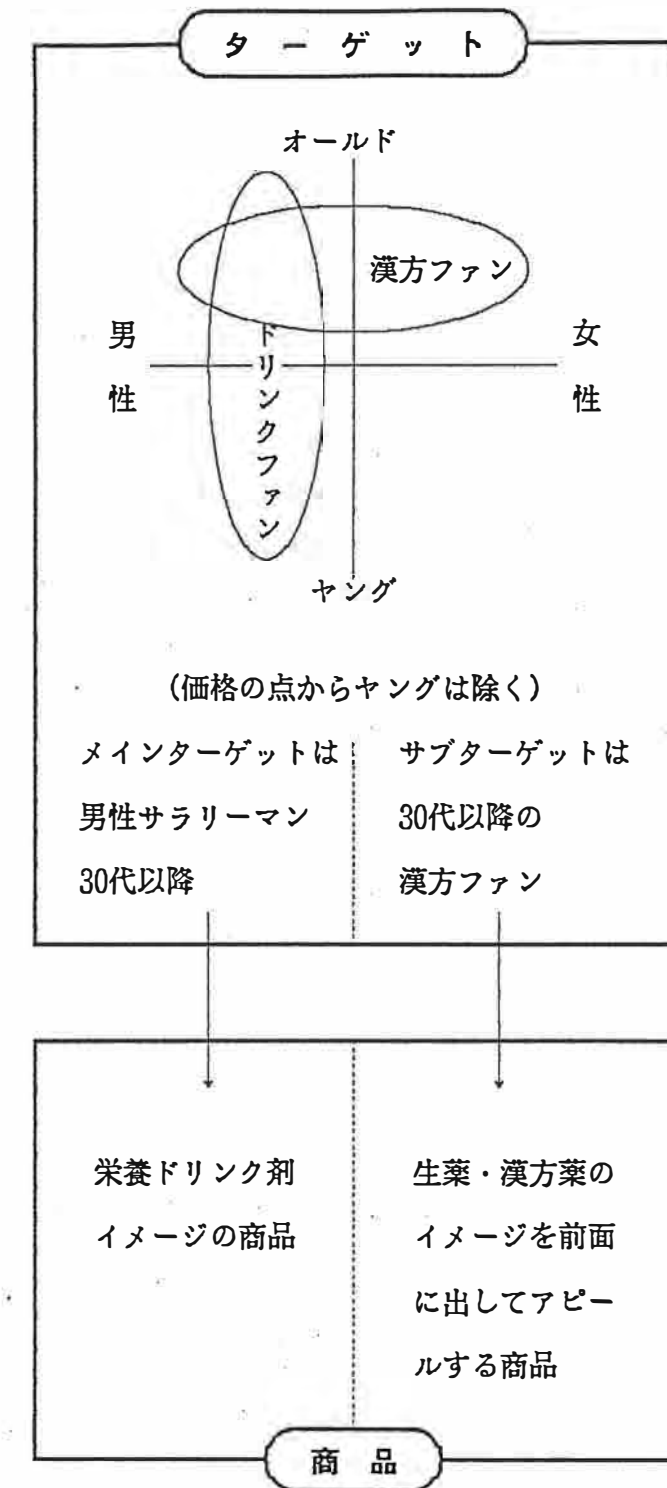 ターゲット
オールド
漢方ファン
男性
女性
ドリンクファン
ヤング
(価格の点からヤングは除く)
メインターゲットは
男性サラリーマン
30代以降
サブターゲットは
30代以降の
漢方ファン
栄養ドリンク剤
イメージの商品
生薬・漢方薬の
イメージを前面
に出してアピー
ルする商品
商品